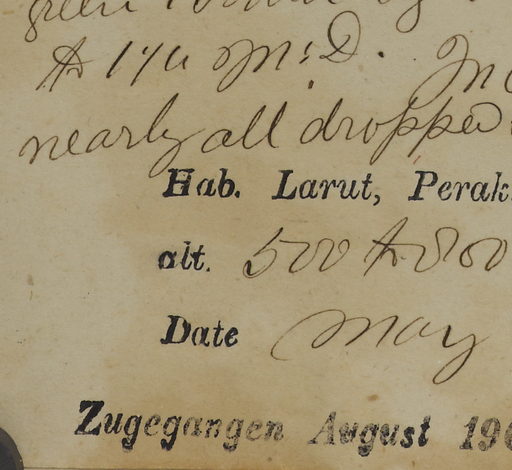 green
to McD. In
nearly all dropped
Hab. Larut, Perak.
alt. 500 to 800
Date May
Zugegangen August 190